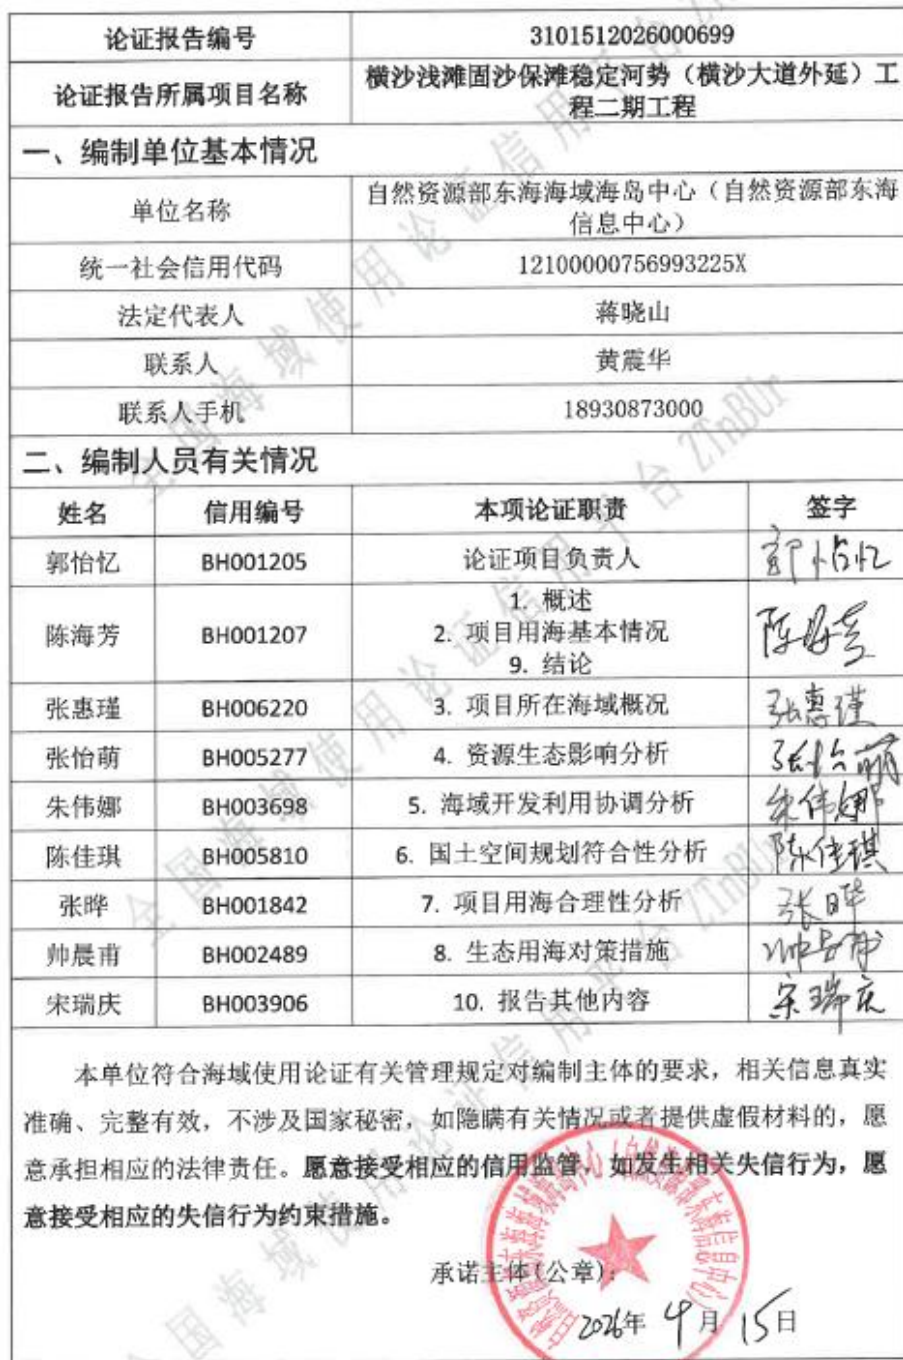 论证报告编号 3101512026000699
论证报告所属项目名称 横沙浅滩固沙保滩稳定河势（横沙大道外延）工
程二期工程
一、编制单位基本情况
单位名称 自然资源部东海海域海岛中心（自然资源部东海
信息中心）
统一社会信用代码 12100000756993225X
法定代表人 蒋晓山
联系人 黄震华
联系人手机 18930873000
二、编制人员有关情况
姓名 信用编号 本项论证职责 签字
郭怡忆 BH001205 论证项目负责人 郭怡忆
陈海芳 BH001207 1. 概述
2. 项目用海基本情况
9. 结论
陈海芳
张惠瑾 BH006220 3. 项目所在海域概况 张惠瑾
张怡萌 BH005277 4. 资源生态影响分析 张怡萌
朱伟娜 BH003698 5. 海域开发利用协调分析 朱伟娜
陈佳琪 BH005810 6. 国土空间规划符合性分析 陈佳琪
张晔 BH001842 7. 项目用海合理性分析 张晔
帅晨甫 BH002489 8. 生态用海对策措施 帅晨甫
宋瑞庆 BH003906 10. 报告其他内容 宋瑞庆
本单位符合海域使用论证有关管理规定对编制主体的要求，相关信息真实
准确、完整有效，不涉及国家秘密，如隐瞒有关情况或者提供虚假材料的，愿
意承担相应的法律责任。愿意接受相应的信用监管，如发生相关失信行为，愿
意接受相应的失信行为约束措施。
承诺主体(公章)：
2026年 4月 15日
全国海域使用论证信用平台 ZTnBUr